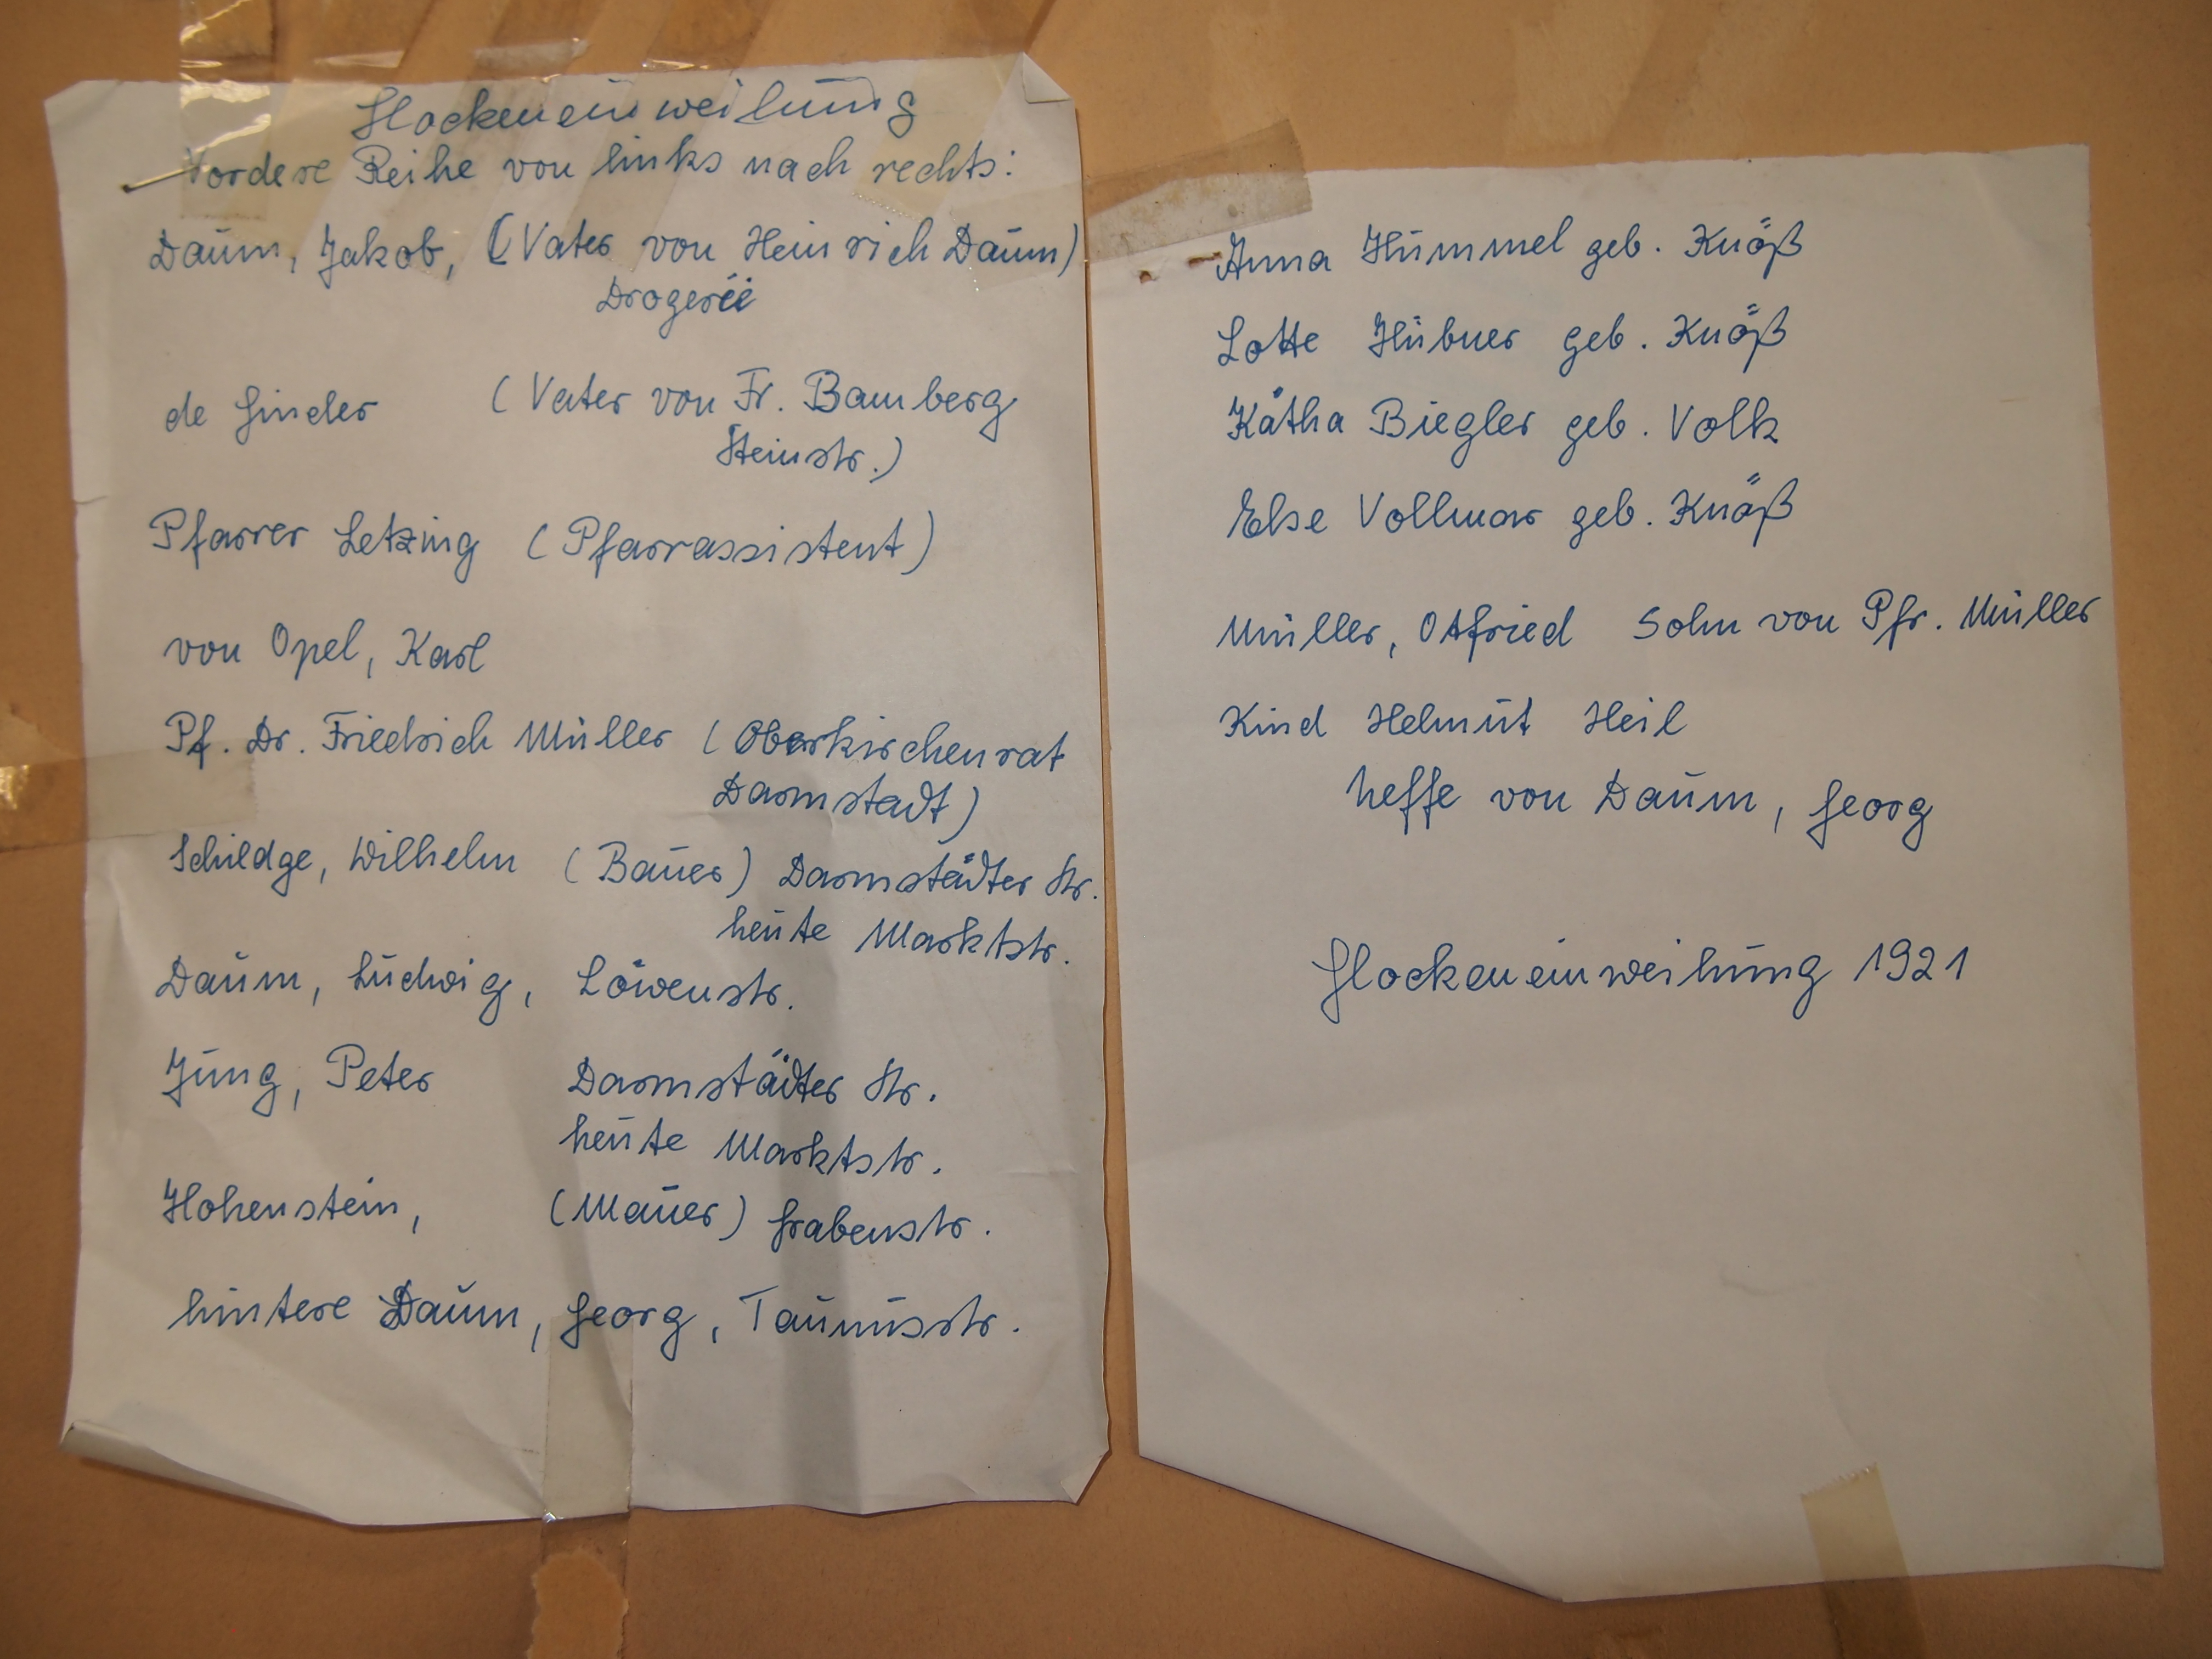 Glockeneinweihung
Vordere Reihe von links nach rechts:
Daum, Jakob, (Vater von Heinrich Daum)
Drogerie
de Ginder (Vater von Fr. Bamberg
Steinstr.)
Pfarrer Letzing (Pfarrassistent)
von Opel, Karl
Pf. Dr. Friedrich Müller (Oberkirchenrat
Darmstadt)
Schildge, Wilhelm (Bauer) Darmstädter Str.
heute Marktstr.
Daum, Ludwig, Löwenstr.
Jung, Peter Darmstädter Str.
heute Marktstr.
Hohenstein, (Mauer) Grabenstr.
hintere Daum, Georg, Taunusstr.
Anna Hummel geb. Knöß
Lotte Hübner geb. Knöß
Kätha Biegler geb. Volk
Else Vollmar geb. Knöß
Müller, Otfried Sohn von Pfr. Müller
Kind Helmut Heil
Neffe von Daum, Georg
Glockeneinweihung 1921